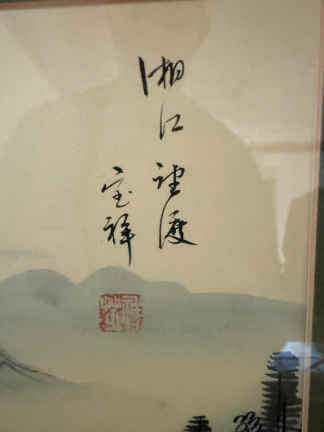 湘江野渡
宝祥